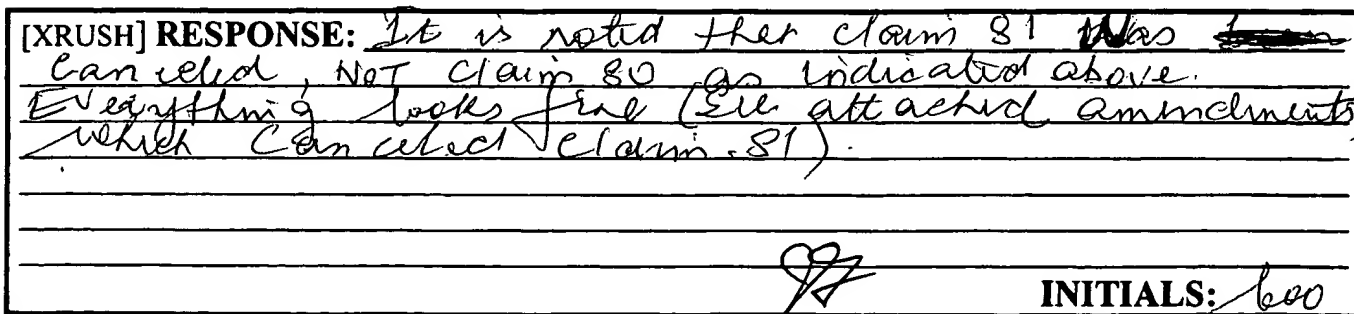 [XRUSH] RESPONSE: It is noted ther claim 81 was
canceled, NOT claim 80 as indicated above.
Everything looks fine (See attached amendments
which canceled claim 81).
INITIALS: